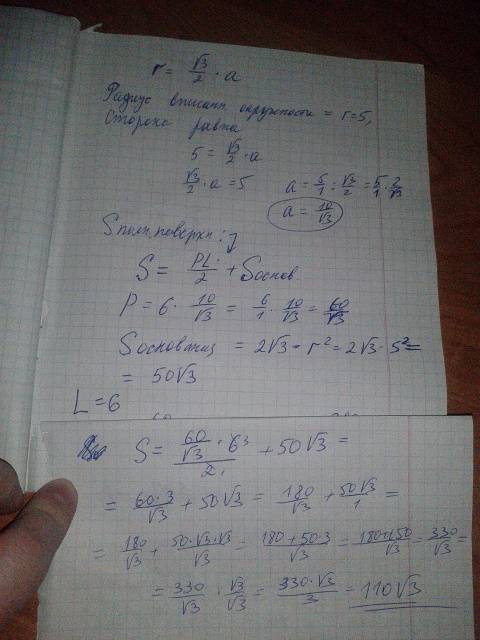 r = √3/2 · a
Радиус вписанн. окружности = r=5,
Сторона равна
5 = √3/2 · a
√3/2 · a = 5    a = 5/1 : √3/2 = 5/1 · 2/√3
a = 10/√3
Sполн. поверхн:
S = PL/2 + Sоснов
P = 6 · 10/√3 = 6/1 · 10/√3 = 60/√3
Sоснов = 2√3 · r² = 2√3 · 5² =
= 50√3
L = 6
S = (60/√3 · 6³)/2₁ + 50√3 =
= 60·3/√3 + 50√3 = 180/√3 + 50√3/1 =
= 180/√3 + 50·√3·√3/√3 = 180+50·3/√3 = 180+150/√3 = 330/√3 =
= 330/√3 · √3/√3 = 330·√3/3 = 110√3